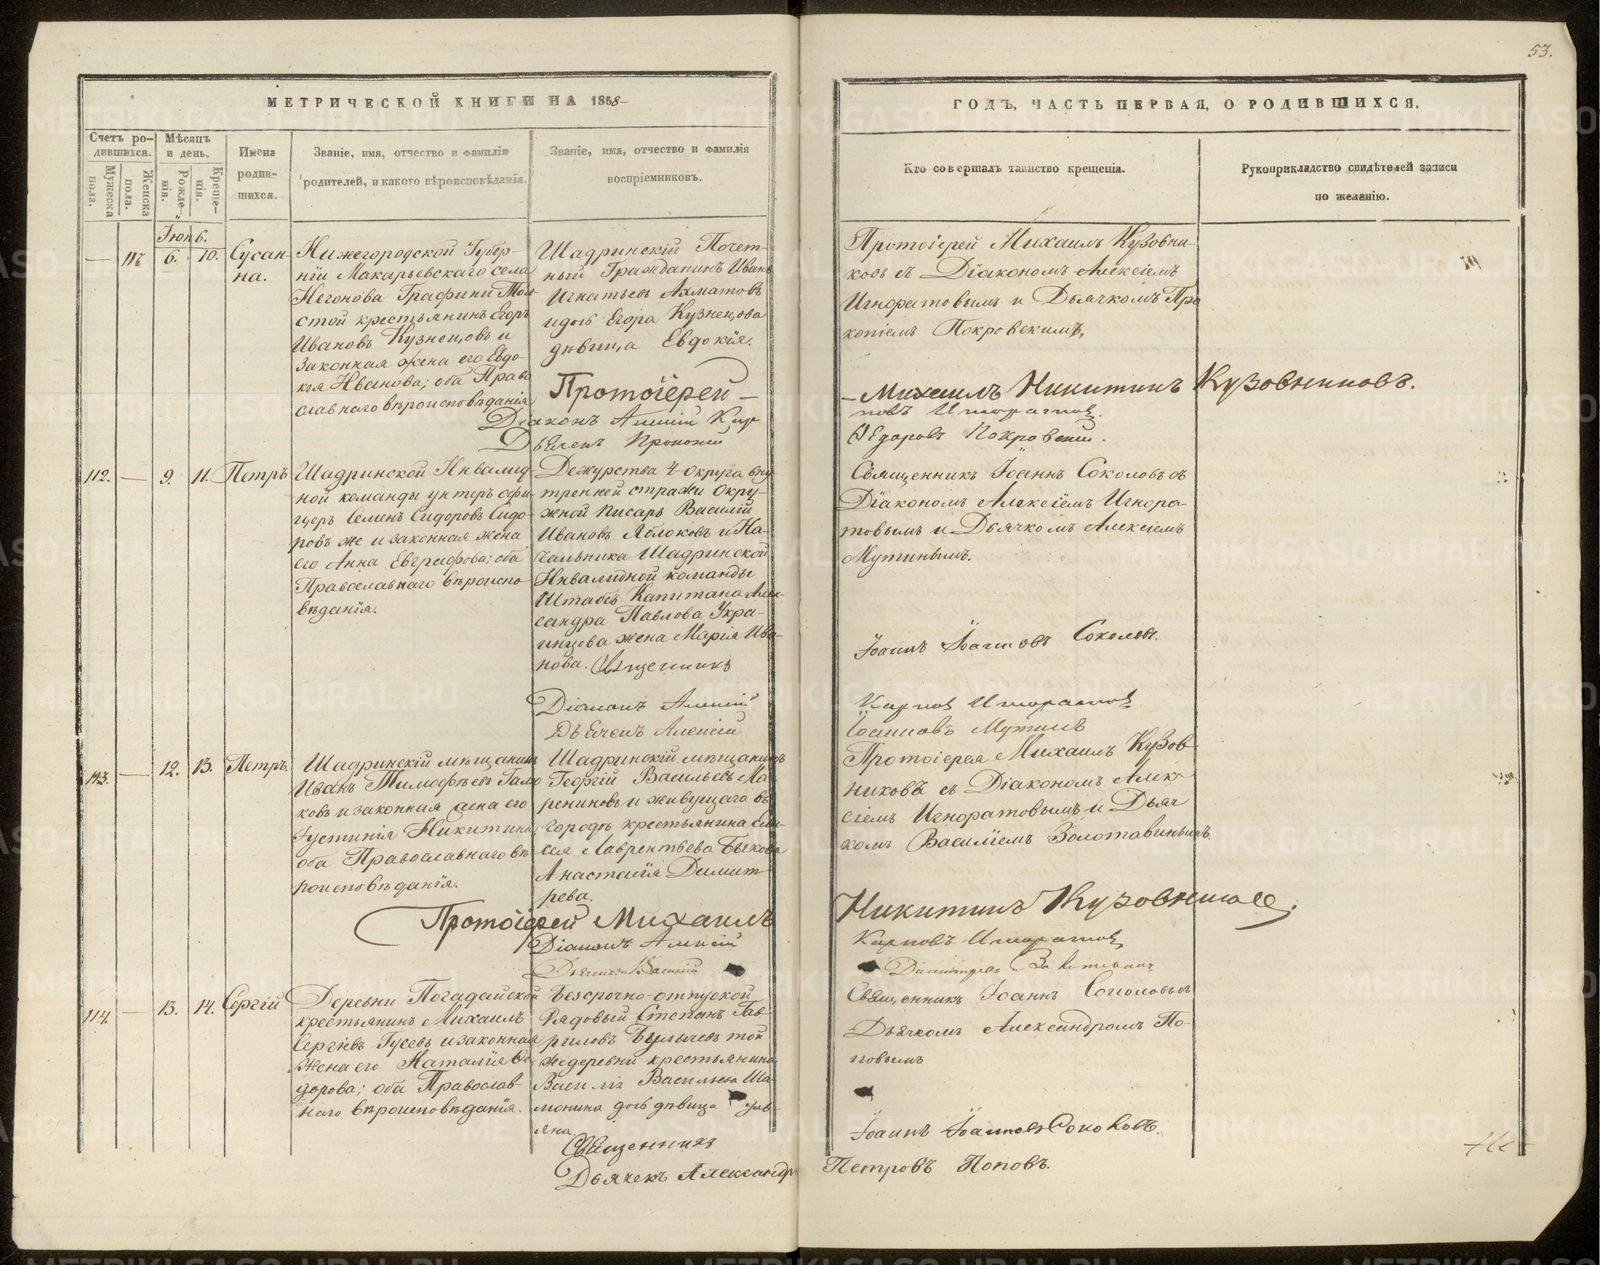 53.
МЕТРИЧЕСКОЙ КНИГИ НА 1858
ГОДЪ, ЧАСТЬ ПЕРВАЯ, О РОДИВШИХСЯ.
Счетъ ро-
дившихся.
Мужеска
пола.
Женска
пола.
Мѣсяцъ
и день.
Рожде-
нія.
Креще-
нія.
Имена
родив-
шихся.
Званіе, имя, отчество и фамилія
родителей, и какого вѣроисповѣданія.
Званіе, имя, отчество и фамилія
воспріемниковъ.
Кто совершалъ таинство крещенія.
Рукоприкладство свидѣтелей записи
по желанію.
Іюнь.
6. 10.
Сусан-
на.
Нижегородской Губер-
ніи Макарьевскаго села
Графини Тол-
стой крестьянинъ Егоръ
Ивановъ Кузнецовъ и
законная жена его Евдо-
кія Иванова; оба Право
славнаго вѣроисповѣданія
Шадринскій Почет-
ный Гражданинъ Иванъ
Игнатьевъ Ахматовъ
и дочь Егора Кузнецова
дѣвица Евдокія.
Протоіерей Михаилъ Кузовни-
ковъ съ Діакономъ Алексіемъ
Игноратовымъ и Дьячкомъ Про
копіемъ Покровскимъ,
Протоіерей –
– Михаилъ Никитинъ Кузовниковъ.
Діаконъ Алексій Кар
повъ Игноратовъ.
Дьячекъ Прокопій
Ѳедоровъ Покровскій.
112. — 9. 11. Петръ
Шадринской Инвалид-
ной команды унтеръ офи-
церъ Семенъ Сидоровъ Сидо-
ровъ же и законная жена
его Анна Евграфова; оба
Православнаго вѣроиспо-
вѣданія.
Дежурства 4 округа вну
тренней стражи Окру-
жной писарь Василій
Ивановъ Яблоковъ и На-
чальника Шадринской
Инвалидной команды
Штабсъ Капитана Алек-
сандра Павлова Укра-
инцева жена Марія Ива-
нова. Священникъ
Священникъ Іоаннъ Соколовъ съ
Діакономъ Алексіемъ Игнора-
товымъ и Дьячкомъ Алексіемъ
Мутинымъ.
Іоаннъ Іоанновъ Соколовъ.
Діаконъ Алексій
Карповъ Игноратовъ
Дьячекъ Алексій
Мутинъ
113. — 12. 13. Петръ.
Шадринскій мѣщанинъ
Иванъ Тимофѣевъ
ковъ и законная жена его
Іустинія Никитина
оба Православнаго вѣ-
роисповѣданія.
Шадринскій мѣщанинъ
Георгій Васильевъ Ма-
рениновъ и живущаго въ
городѣ крестьянина Ели-
сея Лаврентьева Быкова
Анастасія Димит-
рева.
Протоіерей Михаилъ Кузов-
никовъ съ Діакономъ Алек-
сіемъ Игноратовымъ и Дьяч
комъ Василіемъ Золотавинымъ
Протоіерей Михаилъ
Никитинъ Кузовниковъ.
Діаконъ Алексій
Карповъ Игноратовъ
Дьячекъ Василій
114. — 13. 14. Сергій
Деревни Погадайской
крестьянинъ Михаилъ
Сергіевъ Гусевъ и законная
жена его Наталія Ѳе
дорова; оба Православ-
наго вѣроисповѣданія.
Безсрочно-отпускной
Рядовый Степанъ Гав-
риловъ Булычевъ той
же деревни крестьянина
Василія Васильева Ша-
монина дочь дѣвица Уль-
яна.
Священникъ Іоаннъ Соколовъ съ
Дьячкомъ Александромъ По-
повымъ
Священникъ
Іоаннъ Іоанновъ Соколовъ.
Дьячекъ Александръ
Петровъ Поповъ.
METRIKI.GASO-URAL.RU